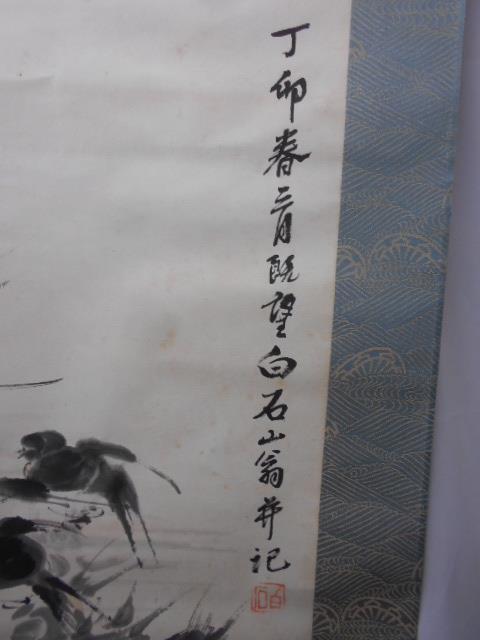 丁卯春二月既望白石山翁并记
白石